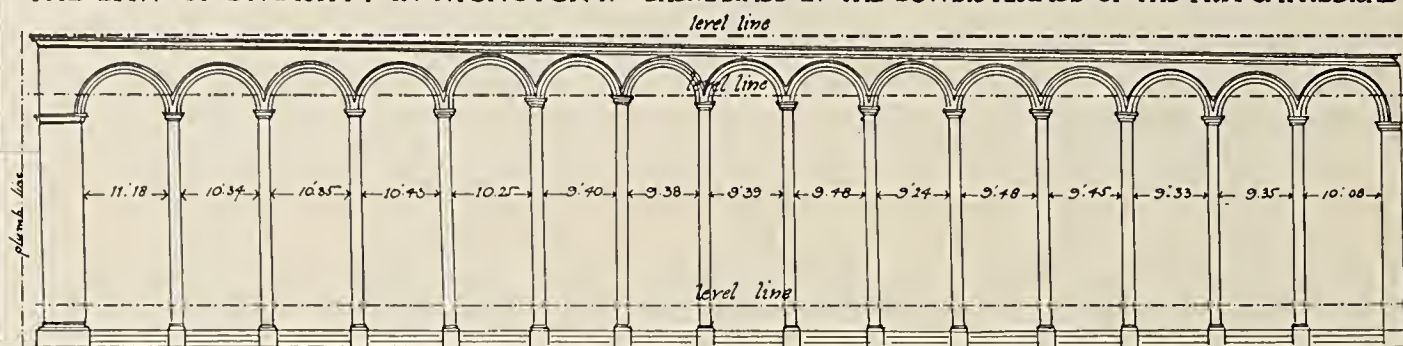 level line
level line
plumb line
11.'18 10.'34 10.'35 10.'43 10.25 9.'40 9.38 9.'39 9.48 9.'24 9.'48 9.'45 9.'33 9.35 10.'08
level line